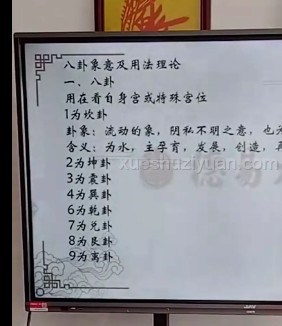 八卦象意及用法理论
一、八卦
用在看自身宫或特殊宫位
1为坎卦
卦象：流动的象，阴私不明之意，也
含义：为水，主孕育，发展，创造，
2为坤卦
xueshuziyuan.com
3为震卦
4为巽卦
6为乾卦
7为兑卦
8为艮卦
9为离卦